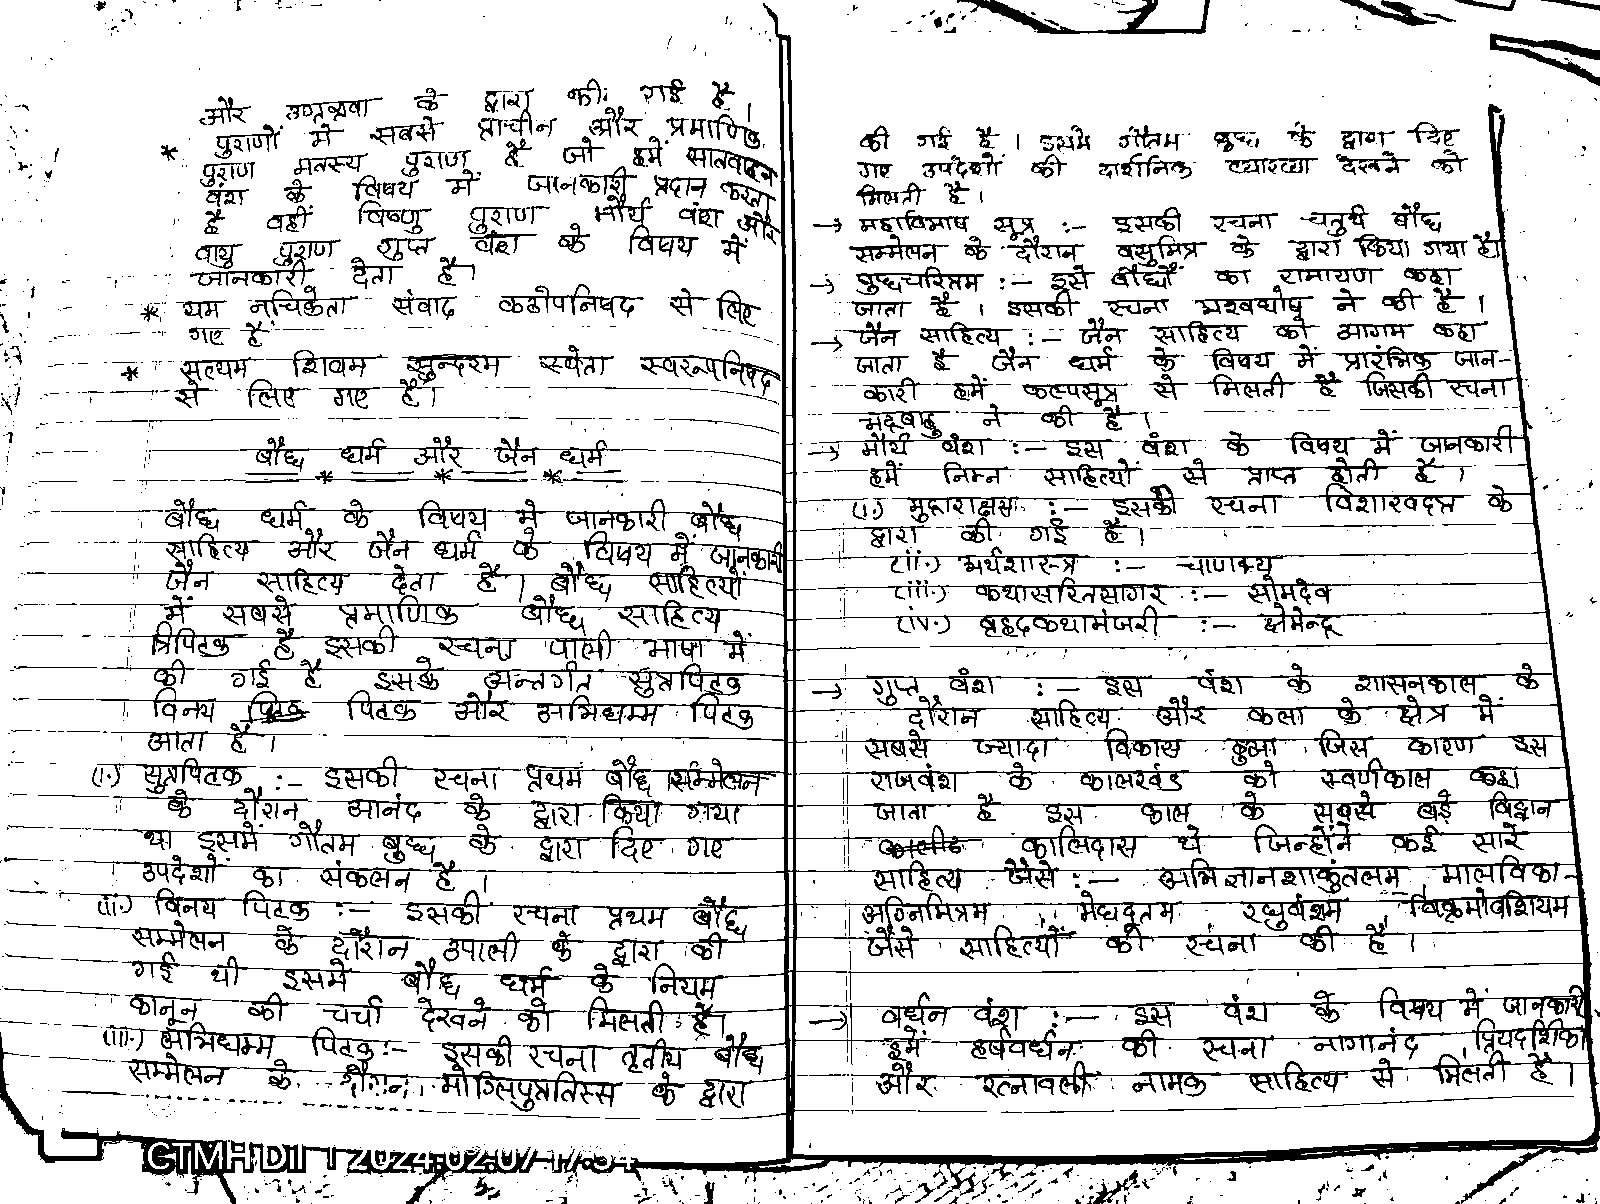 और उग्रश्रवा के द्वारा की गई है।
* पुराणों में सबसे प्राचीन और प्रमाणिक
पुराण मतस्य पुराण है जो हमें सातवाहन
वंश के विषय में जानकारी प्रदान करता
है वहीं विष्णु पुराण मौर्य वंश और
वायु पुराण गुप्त वंश के विषय में
जानकारी देता है।
* यम नचिकेता संवाद कठोपनिषद से लिए
गए हैं
* सत्यम शिवम सुन्दरम स्वेता स्वरूपनिषद
से लिए गए है।
बौद्ध धर्म और जैन धर्म
बौद्ध धर्म के विषय में जानकारी बौद्ध
साहित्य और जैन धर्म के विषय में जानकारी
जैन साहित्य देता है। बौद्ध साहित्यों
में सबसे प्रमाणिक बौद्ध साहित्य
त्रिपिटक है इसकी रचना पाली भाषा में
की गई है इसके अन्तर्गत सुत्तपिटक
विनय पिटक और अभिधम्म पिटक
आता है।
(i.) सुत्तपिटक :- इसकी रचना प्रथम बौद्ध सम्मेलन
के दौरान आनंद के द्वारा किया गया
था इसमें गौतम बुद्ध के द्वारा दिए गए
उपदेशों का संकलन है।
(ii.) विनय पिटक :- इसकी रचना प्रथम बौद्ध
सम्मेलन के दौरान उपाली के द्वारा की
गई थी इसमें बौद्ध धर्म के नियम
कानून की चर्चा देखने को मिलती है।
(iii.) अभिधम्म पिटक:- इसकी रचना तृतीय बौद्ध
सम्मेलन के दौरान मोग्लिपुत्ततिस्स के द्वारा
की गई है। इसमें गौतम बुद्ध के द्वारा दिए
गए उपदेशों की दार्शनिक व्याख्या देखने को
मिलती है।
→ महाविभाष सूत्र :- इसकी रचना चतुर्थ बौद्ध
सम्मेलन के दौरान वसुमित्र के द्वारा किया गया है।
→ बुद्धचरित्रम :- इसे बौद्धों का रामायण कहा
जाता है। इसकी रचना अश्वघोष ने की है।
→ जैन साहित्य :- जैन साहित्य को आगम कहा
जाता है जैन धर्म के विषय में प्रारंभिक जान-
कारी हमें कल्पसूत्र से मिलती है जिसकी रचना
भद्रबाहु ने की है।
→ मौर्य वंश :- इस वंश के विषय में जानकारी
हमें निम्न साहित्यों से प्राप्त होती है।
(i.) मुद्राराक्षस :- इसकी रचना विशाखदत्त के
द्वारा की गई है।
(ii.) अर्थशास्त्र :- चाणक्य
(iii.) कथासरितसागर :- सोमदेव
(iv.) बृहदकथामंजरी :- क्षेमेन्द्र
→ गुप्त वंश :- इस वंश के शासनकाल के
दौरान साहित्य और कला के क्षेत्र में
सबसे ज्यादा विकास हुआ जिस कारण इस
राजवंश के कालखंड को स्वर्णकाल कहा
जाता है इस काल के सबसे बड़े विद्वान
कालिदास थे जिन्होंने कई सारे
साहित्य जैसे :- अभिज्ञानशाकुंतलम मालविका-
अग्निमित्रम, मेघदूतम रघुवंशम विक्रमोवशियम
जैसे साहित्यों की रचना की है।
→ वर्धन वंश :- इस वंश के विषय में जानकारी
हमें हर्षवर्धन की रचना नागानंद, प्रियदर्शिका
और रत्नावली नामक साहित्य से मिलती है।